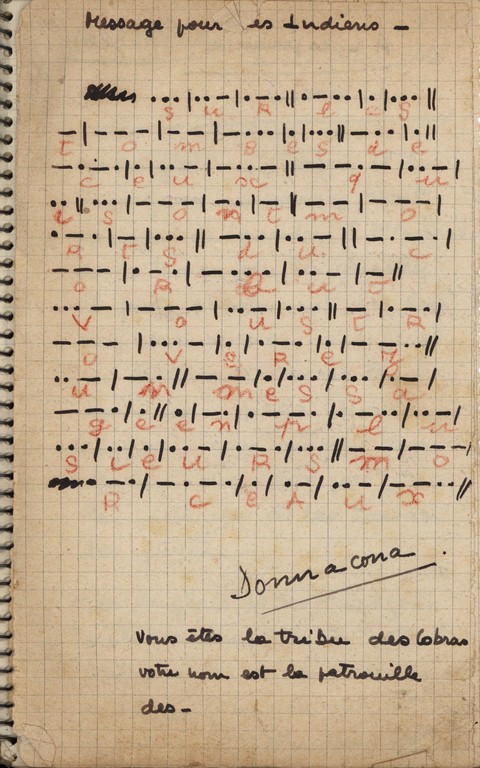 Message pour es Indiens -
s u R l e s
t o m b e s d e
c e u x q u
i s o n t m o
R t s d u c
o R B u t
V o u s t R
o V e R e z
u n m e s s a
g e e n p l u
s i e u R s m o
R c e A u x
Donnacona.
Vous êtes la tribu des Cobras
votre nom est la patrouille
des-